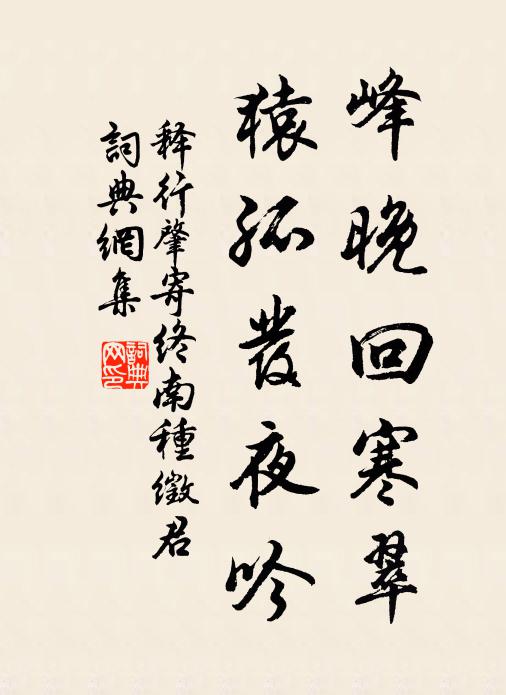 峰晚回寒翠
猿孤發夜吟
释行肇寄终南種徵君
詞典網集
詞典网印